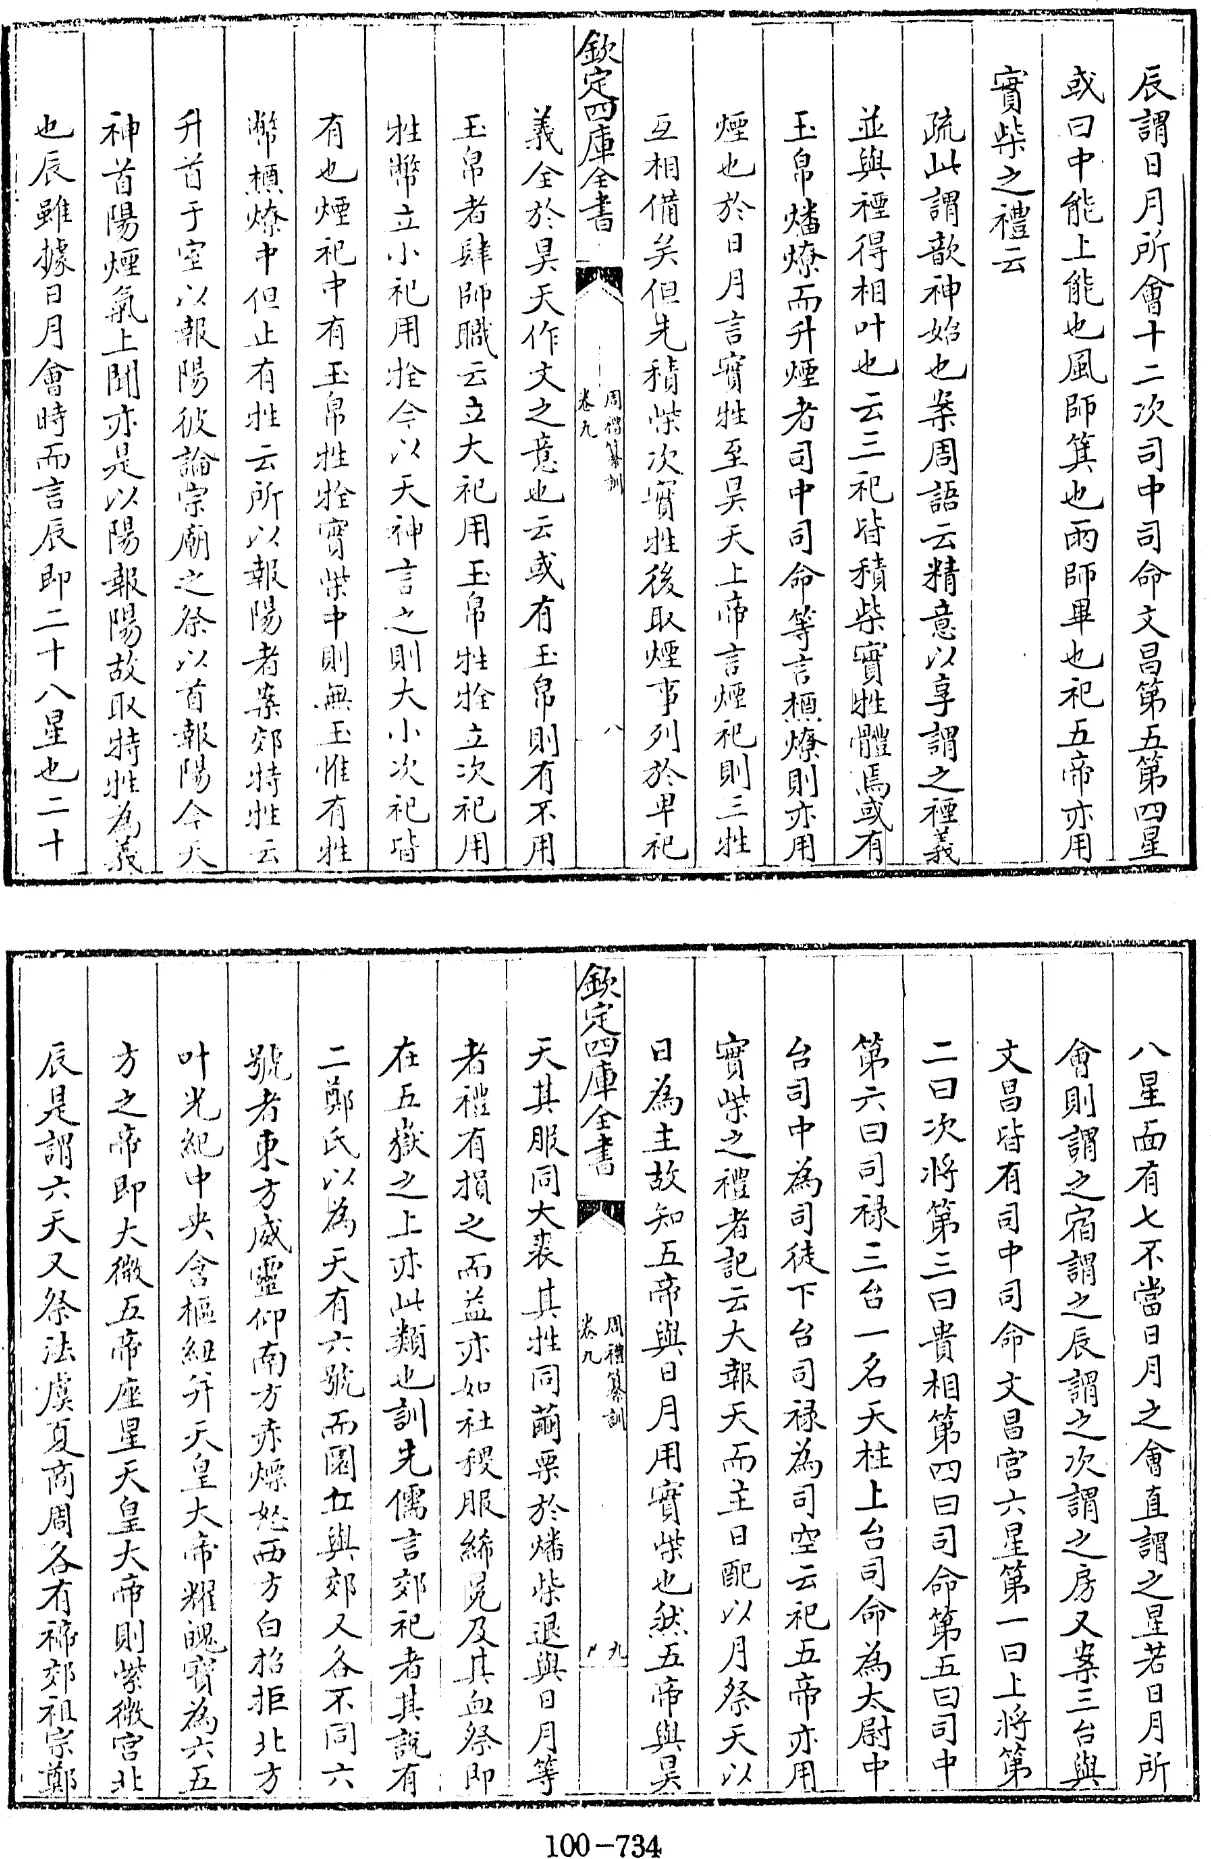 辰謂日月所會十二次司中司命文昌第五第四星
或曰中能上能也風師箕也雨師畢也祀五帝亦用
實柴之禮云
疏此謂歆神始也案周語云精意以享謂之禋義
並與禋得相叶也云三祀皆積柴實牲體焉或有
玉帛燔燎而升煙者司中司命等言槱燎則亦用
煙也於日月言實牲至昊天上帝言煙祀則三牲
互相備矣但先積柴次實牲後取煙事列於卑祀
欽定四庫全書
周禮纂訓
卷九
八
義全於昊天作文之意也云或有玉帛則有不用
玉帛者肆師職云立大祀用玉帛牲牷立次祀用
牲幣立小祀用牷今以天神言之則大小次祀皆
有也煙祀中有玉帛牲牷實柴中則無玉惟有牲
幣槱燎中但止有牲云所以報陽者案郊特牲云
升首于室以報陽彼論宗廟之祭以首報陽今天
神首陽煙氣上聞亦是以陽報陽故取特牲為義
也辰雖據日月會時而言辰即二十八星也二十
八星面有七不當日月之會直謂之星若日月所
會則謂之宿謂之辰謂之次謂之房又案三台與
文昌皆有司中司命文昌宮六星第一曰上將第
二曰次將第三曰貴相第四曰司命第五曰司中
第六曰司祿三台一名天柱上台司命為太尉中
台司中為司徒下台司祿為司空云祀五帝亦用
實柴之禮者記云大報天而主日配以月祭天以
日為主故知五帝與日月用實柴也然五帝與昊
欽定四庫全書
周禮纂訓
卷九
九
天其服同大裘其牲同繭栗於燔柴退與日月等
者禮有損之而益亦如社稷服絺冕及其血祭即
在五嶽之上亦此類也訓先儒言郊祀者其說有
二鄭氏以為天有六號而圜丘與郊又各不同六
號者東方威靈仰南方赤熛怒西方白招拒北方
叶光紀中央含樞紐并天皇大帝耀魄寶為六五
方之帝即大微五帝座星天皇大帝則紫微宮北
辰是謂六天又祭法虞夏商周各有禘郊祖宗鄭
100-734